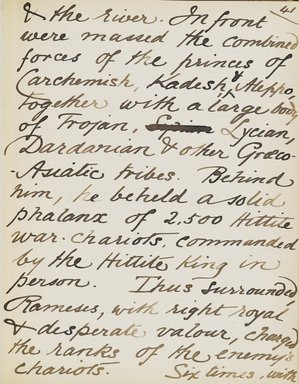 41
& the river. In front
were massed the combined
forces of the princes of
Carchemish, Kadesh & Aleppo,
together with a large body
of Trojan, Lycian,
Dardanian & other Græco
-Asiatic tribes. Behind
him, he beheld a solid
phalanx of 2.500 Hittite
war-chariots, commanded
by the Hittite King in
person. Thus surrounded
Rameses, with right royal
& desperate valour, charged
the ranks of the enemy's
chariots. Six times, with